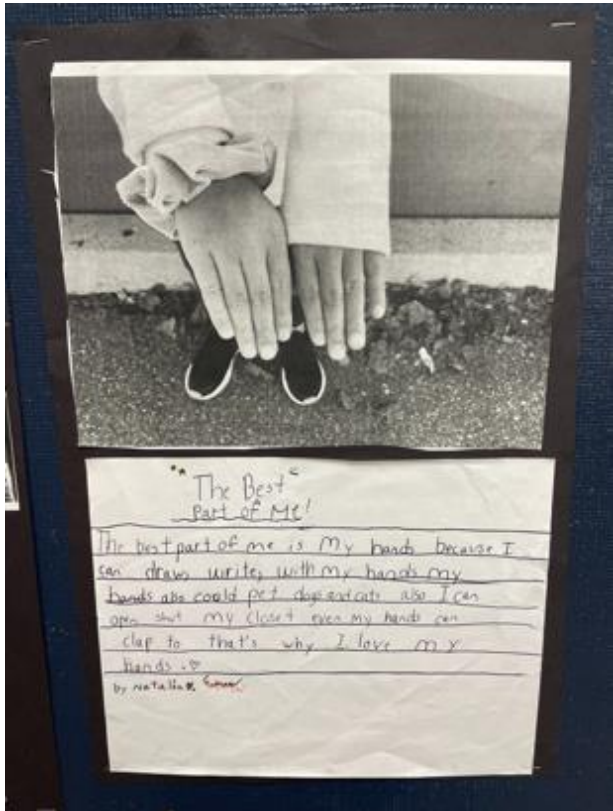 "The Best"
Part of Me!
The best part of me is my hands because I
can draw, write, with my hands my
hands also could pet dogs and cats also I can
open shut my closet even my hands can
clap to that's why I love my
hands. ♡
by Natalia